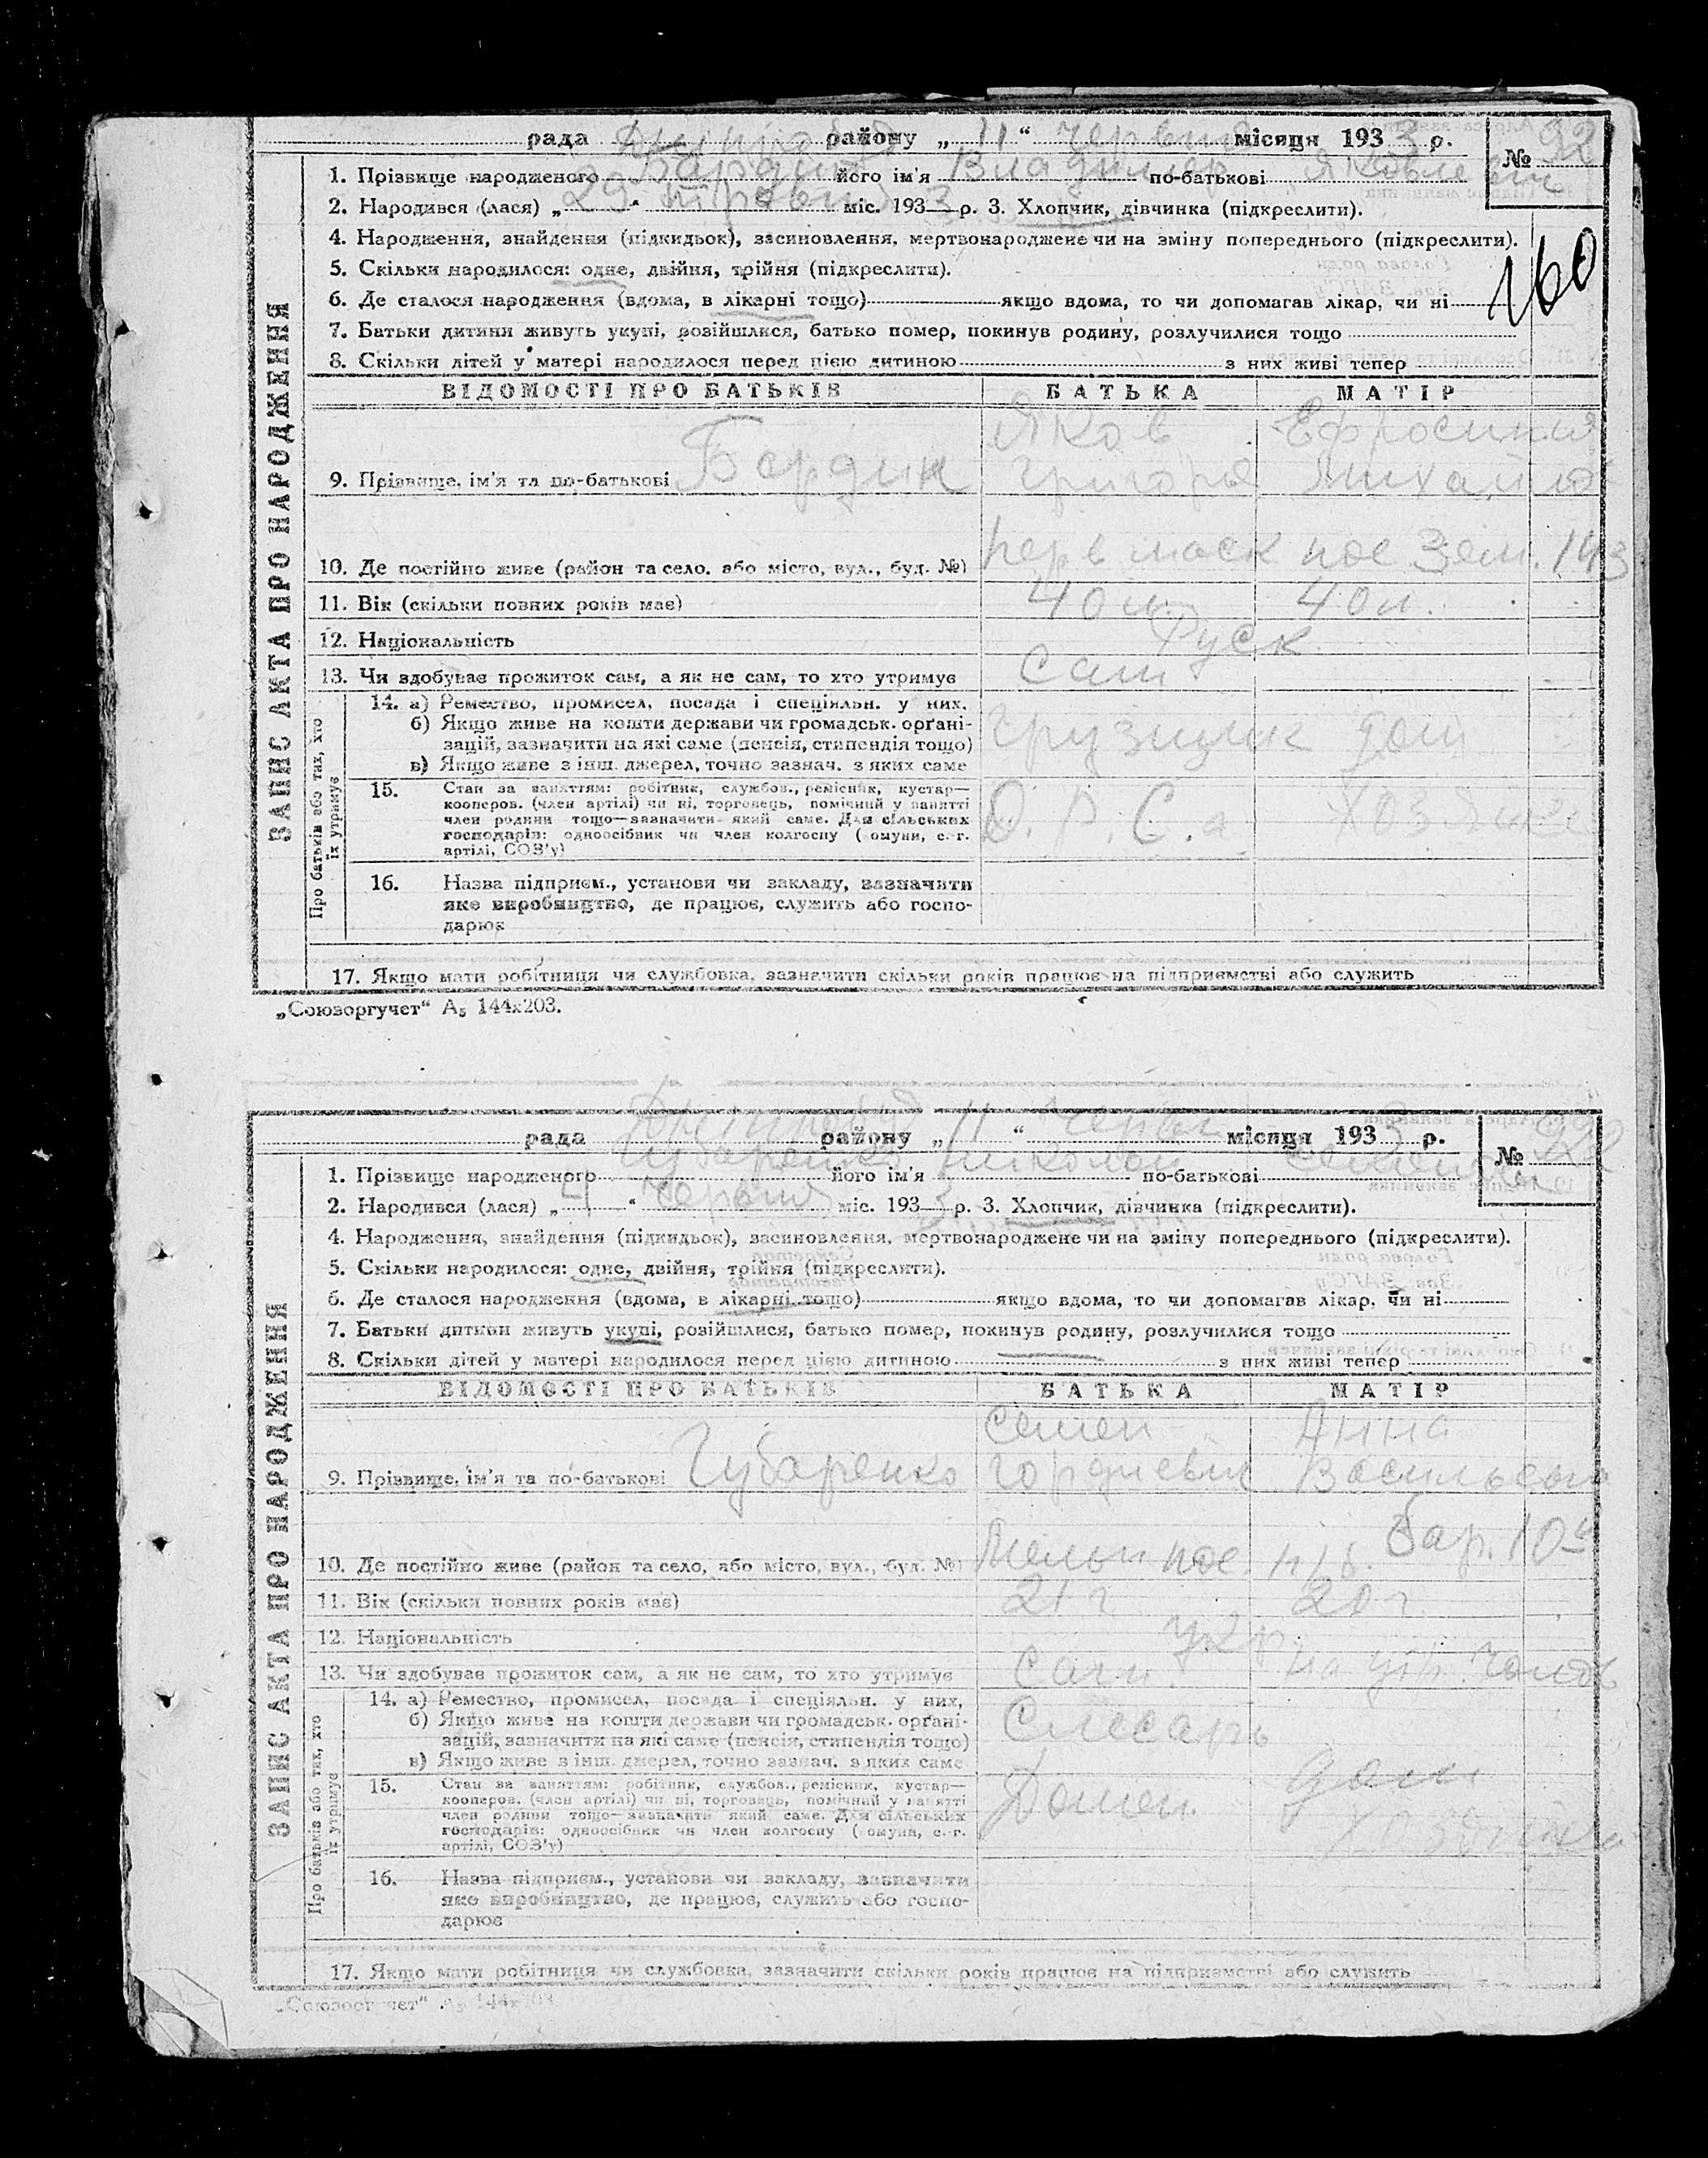 рада Дніпров району „ 11 “ червня місяця 193 3 р. №
1. Прізвище народженого Бардин його ім'я Владимир по-батькові Яковлевич
2. Народився (лася) „ 29 “ травня міс. 193 3 р. 3. Хлопчик, дівчинка (підкреслити).
4. Народження, знайдення (підкидьок), засиновлення, мертвонароджене чи на зміну попереднього (підкреслити).
5. Скільки народилося: одне, двійня, трійня (підкреслити).
160
6. Де сталося народження (вдома, в лікарні тощо) якщо вдома, то чи допомагав лікар, чи ні
7. Батьки дитини живуть укупі, розійшлися, батько помер, покинув родину, розлучилися тощо
8. Скільки дітей у матері народилося перед цією дитиною з них живі тепер
ЗАПИС АКТА ПРО НАРОДЖЕННЯ
ВІДОМОСТІ ПРО БАТЬКІВ БАТЬКА МАТІР
Яков Ефросиния
9. Прізвище, ім'я та по-батькові Бардин Григорьев Михайлов
10. Де постійно живе (район та село, або місто, вул., буд. №) пос Зем. 143
11. Вік (скільки повних років має) 40 л. 40 л.
12. Національність Руск
13. Чи здобуває прожиток сам, а як не сам, то хто утримує Сам
Про батьків або тих, хто їх утримує
14. а) Ремество, промисел, посада і спеціяльн. у них.
б) Якщо живе на кошти держави чи громадськ. орґані-
зацій, зазначити на які саме (пенсія, стипендія тощо) Грузчик дом
в) Якщо живе з інш. джерел, точно зазнач. з яких саме
15. Стан за заняттям: робітник, службов., ремісник, кустар—
кооперов. (член артілі) чи ні, торговець, помічний у занятті
член родини тощо—зазначити який саме. Для сільських О. Р. С. Хозяйка
господарів: одноосібник чи член колгоспу (омуни, с.-г.
артілі, СОЗ'у)
16. Назва підприєм., установи чи закладу, зазначити
яке виробництво, де працює, служить або госпо-
дарює
17. Якщо мати робітниця чи службовка, зазначити скільки років працює на підприємстві або служить
„Союзоргучет“ А5 144х203.
рада Дніпров району „ 11 “ червн місяця 193 3 р. №
1. Прізвище народженого Губаренко його ім'я Николай по-батькові Семенович
2. Народився (лася) „ 4 “ червня міс. 193 3 р. 3. Хлопчик, дівчинка (підкреслити).
4. Народження, знайдення (підкидьок), засиновлення, мертвонароджене чи на зміну попереднього (підкреслити).
5. Скільки народилося: одне, двійня, трійня (підкреслити).
6. Де сталося народження (вдома, в лікарні тощо) якщо вдома, то чи допомагав лікар, чи ні
7. Батьки дитини живуть укупі, розійшлися, батько помер, покинув родину, розлучилися тощо
8. Скільки дітей у матері народилося перед цією дитиною з них живі тепер
ЗАПИС АКТА ПРО НАРОДЖЕННЯ
ВІДОМОСТІ ПРО БАТЬКІВ БАТЬКА МАТІР
Семен Анна
9. Прізвище, ім'я та по-батькові Губаренко Гордиевич Васильевна
10. Де постійно живе (район та село, або місто, вул., буд. №) пос. бар. 10
11. Вік (скільки повних років має) 21 г. 20 г.
12. Національність Укр
13. Чи здобуває прожиток сам, а як не сам, то хто утримує Сам.
Про батьків або тих, хто їх утримує
14. а) Ремество, промисел, посада і спеціяльн. у них,
б) Якщо живе на кошти держави чи громадськ. орґані- Слесарь
зацій, зазначити на які саме (пенсія, стипендія тощо)
в) Якщо живе з інш. джерел, точно зазнач. з яких саме дом
15. Стан за заняттям: робітник, службов., ремісник, кустар—
кооперов. (член артілі) чи ні, торговець, помічний у занятті Домен.
член родини тощо—зазначити який саме. Для сільських Хозяйка
господарів: одноосібник чи член колгоспу (омуни, с.-г.
артілі, СОЗ'у)
16. Назва підприєм., установи чи закладу, зазначити
яке виробництво, де працює, служить або госпо-
дарює
17. Якщо мати робітниця чи службовка, зазначити скільки років працює на підприємстві або служить
„Союзоргучет“ А5 144х203